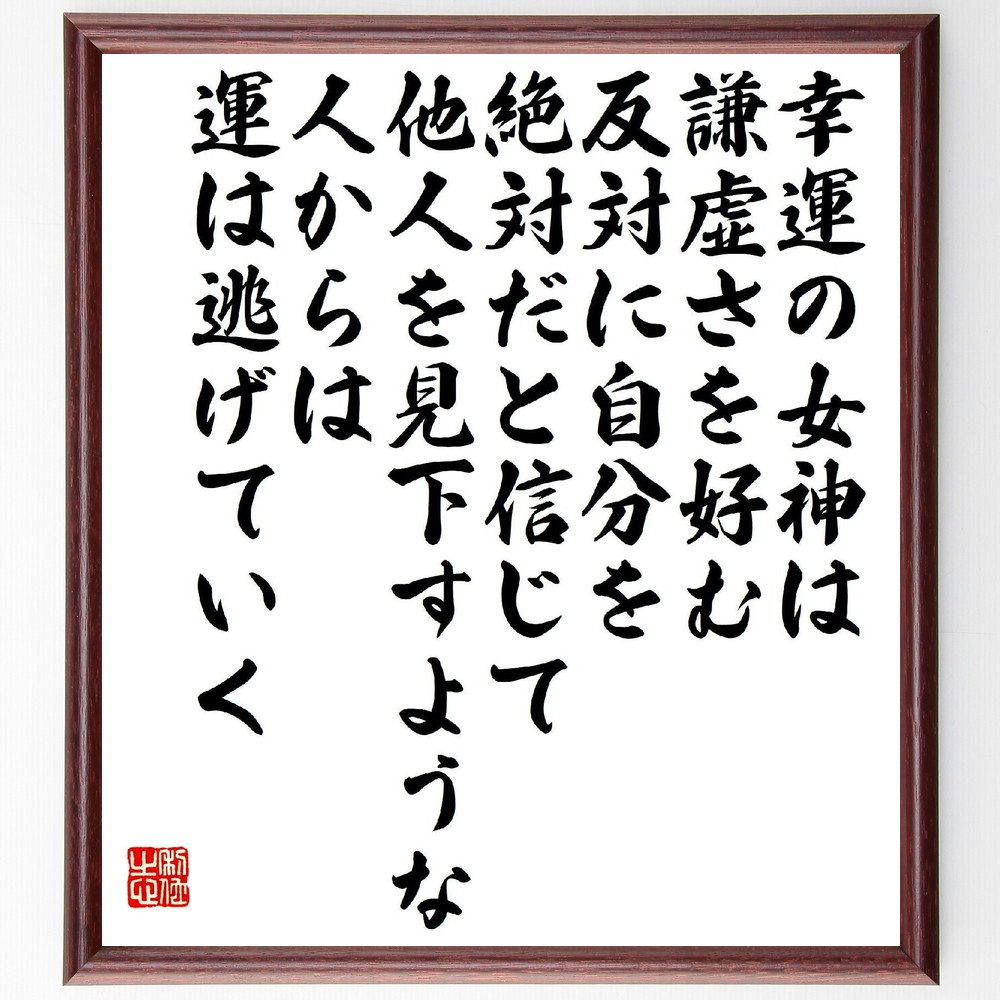 幸運の女神は
謙虚さを好む
反対に自分を
絶対だと信じて
他人を見下すような
人からは
運は逃げていく